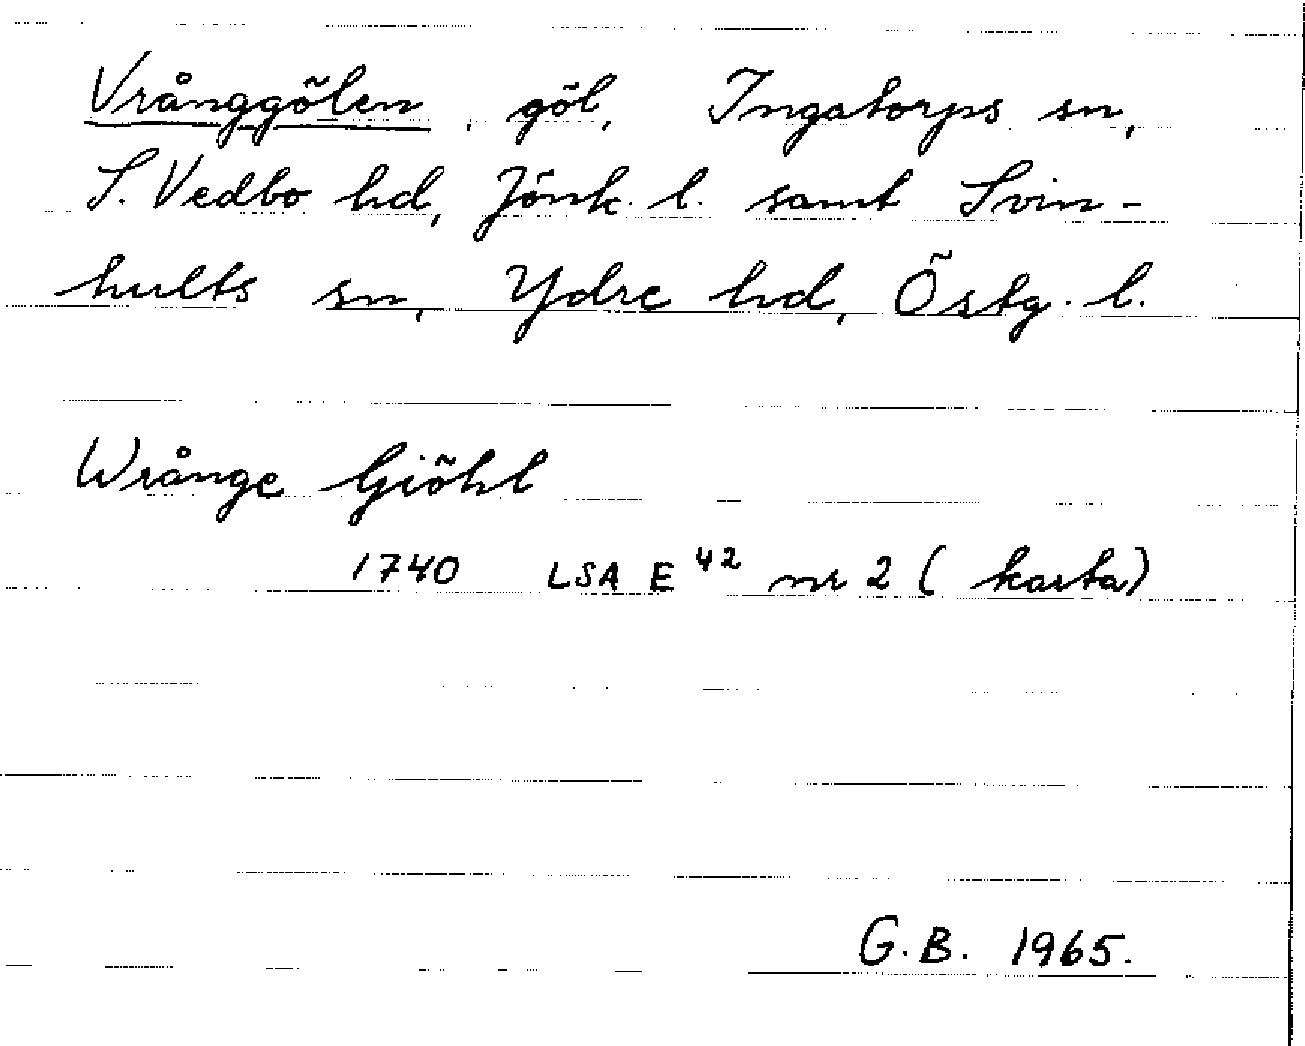 Vrånggölen, göl, Ingatorps sn,
S. Vedbo hd, Jönk. l. samt Svin-
hults sn, Ydre hd, Östg. l.
Wrånge Giöhl
1740 LSA E⁴² nr 2 (karta)
G.B. 1965.